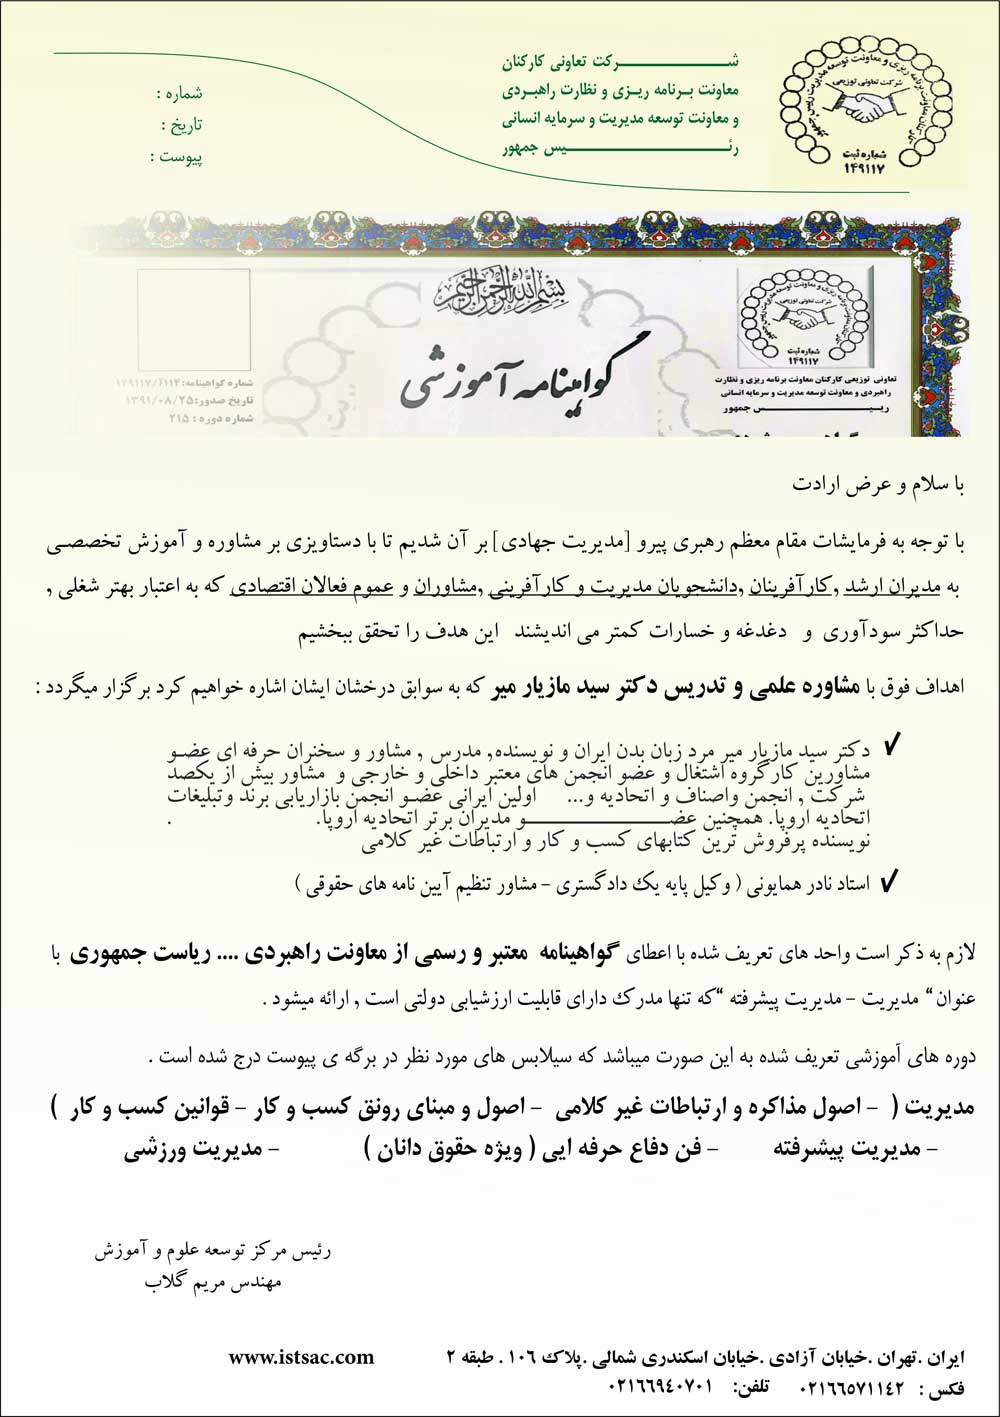 شرکت تعاونی کارکنان
معاونت برنامه ریزی و نظارت راهبردی
و معاونت توسعه مدیریت و سرمایه انسانی
رئیس جمهور
شماره :
تاریخ :
پیوست :
شرکت تعاونی توزیعی
شماره ثبت
۱۴۹۱۱۷
بسم الله الرحمن الرحیم
گواهینامه آموزشی
شرکت تعاونی توزیعی
شماره ثبت
۱۴۹۱۱۷
تعاونی توزیعی کارکنان معاونت برنامه ریزی و نظارت
راهبردی و معاونت توسعه مدیریت و سرمایه انسانی
رییس جمهور
شماره گواهینامه: ۱۴۹۱۱۷/آ۱۱۴
تاریخ صدور: ۱۳۹۱/۰۸/۲۵
شماره دوره : ۲۱۵
با سلام و عرض ارادت
با توجه به فرمایشات مقام معظم رهبری پیرو [مدیریت جهادی] بر آن شدیم تا با دستاویزی بر مشاوره و آموزش تخصصی
به مدیران ارشد ,کارآفرینان ,دانشجویان مدیریت و کارآفرینی ,مشاوران و عموم فعالان اقتصادی که به اعتبار بهتر شغلی ,
حداکثر سودآوری و دغدغه و خسارات کمتر می اندیشند این هدف را تحقق ببخشیم
اهداف فوق با مشاوره علمی و تدریس دکتر سید مازیار میر که به سوابق درخشان ایشان اشاره خواهیم کرد برگزار میگردد :
✓ دکتر سید مازیار میر مرد زبان بدن ایران و نویسنده, مدرس , مشاور و سخنران حرفه ای عضو
مشاورین کارگروه اشتغال و عضو انجمن های معتبر داخلی و خارجی و مشاور بیش از یکصد
شرکت , انجمن واصناف و اتحادیه و... اولین ایرانی عضو انجمن بازاریابی برند وتبلیغات
اتحادیه اروپا. همچنین عضو مدیران برتر اتحادیه اروپا. .
نویسنده پرفروش ترین کتابهای کسب و کار و ارتباطات غیر کلامی
✓ استاد نادر همایونی ( وکیل پایه یک دادگستری - مشاور تنظیم آیین نامه های حقوقی )
لازم به ذکر است واحد های تعریف شده با اعطای گواهینامه معتبر و رسمی از معاونت راهبردی .... ریاست جمهوری با
عنوان “ مدیریت - مدیریت پیشرفته “که تنها مدرک دارای قابلیت ارزشیابی دولتی است , ارائه میشود .
دوره های آموزشی تعریف شده به این صورت میباشد که سیلابس های مورد نظر در برگه ی پیوست درج شده است .
مدیریت ( - اصول مذاکره و ارتباطات غیر کلامی - اصول و مبنای رونق کسب و کار - قوانین کسب و کار )
- مدیریت پیشرفته - فن دفاع حرفه ایی ( ویژه حقوق دانان ) - مدیریت ورزشی
رئیس مرکز توسعه علوم و آموزش
مهندس مریم گلاب
ایران .تهران .خیابان آزادی .خیابان اسکندری شمالی .پلاک ۱۰۶ . طبقه ۲ www.istsac.com
فکس : ۰۲۱۶۶۵۷۱۱۴۲ تلفن: ۰۲۱۶۶۹۴۰۷۰۱